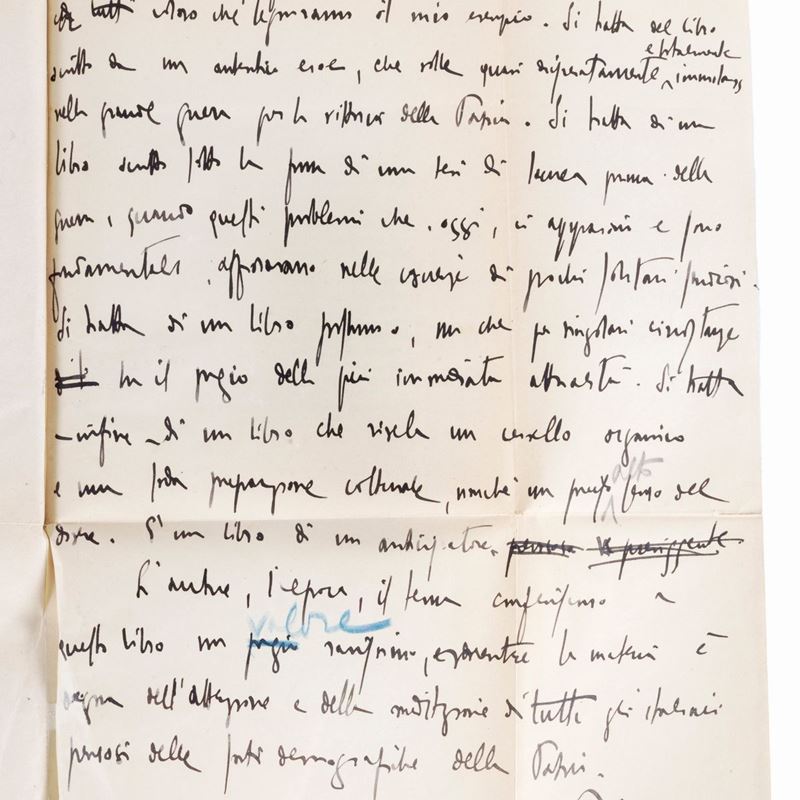 tutti coloro che seguiranno il mio esempio. Si tratta del libro
e totalmente
scritto da un autentico eroe, che volle quasi disperatamente immolarsi
nella grande guerra per la vittoria della Patria. Si tratta di un
libro scritto sotto la forma di una tesi di laurea prima della
guerra, quando questi problemi che, oggi, ci appassionano e sono
fondamentali, affioravano nelle di pochi solitari studiosi.
Si tratta di un libro postumo, ma che per singolari circostanze
ha il pregio della più immediata attualità. Si tratta
– infine – di un libro che rivela un cervello organico
alto
e una soda preparazione culturale, nonché un senso del
dovere. E' un libro di un anticipatore.
L'autore, l'epoca, il tema conferiscono a
valore
questo libro un pregio, mentre la materia è
degna dell'attenzione e della meditazione di tutti gli italiani
pensosi delle sorti demografiche della Patria.